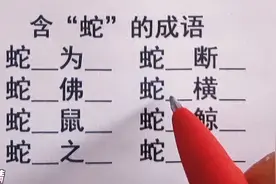 含“蛇”的成语
蛇__为__ 蛇__断__
蛇__佛__ 蛇__横__
蛇__鼠__ 蛇__鲸__
蛇__之__ 蛇__